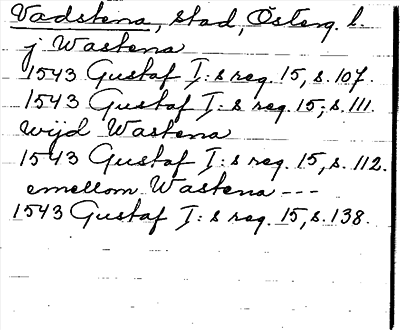 Vadstena, stad, Österg. l.
j Wastena
1543 Gustaf I:s reg. 15, s. 107.
1543 Gustaf I:s reg. 15, s. 111.
wijd Wastena
1543 Gustaf I:s reg. 15, s. 112.
emellom Wastena ---
1543 Gustaf I:s reg. 15, s. 138.